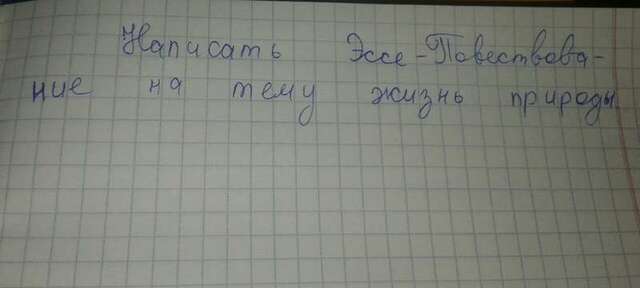 Написать Эссе-Повествова-
ние на тему жизнь природы